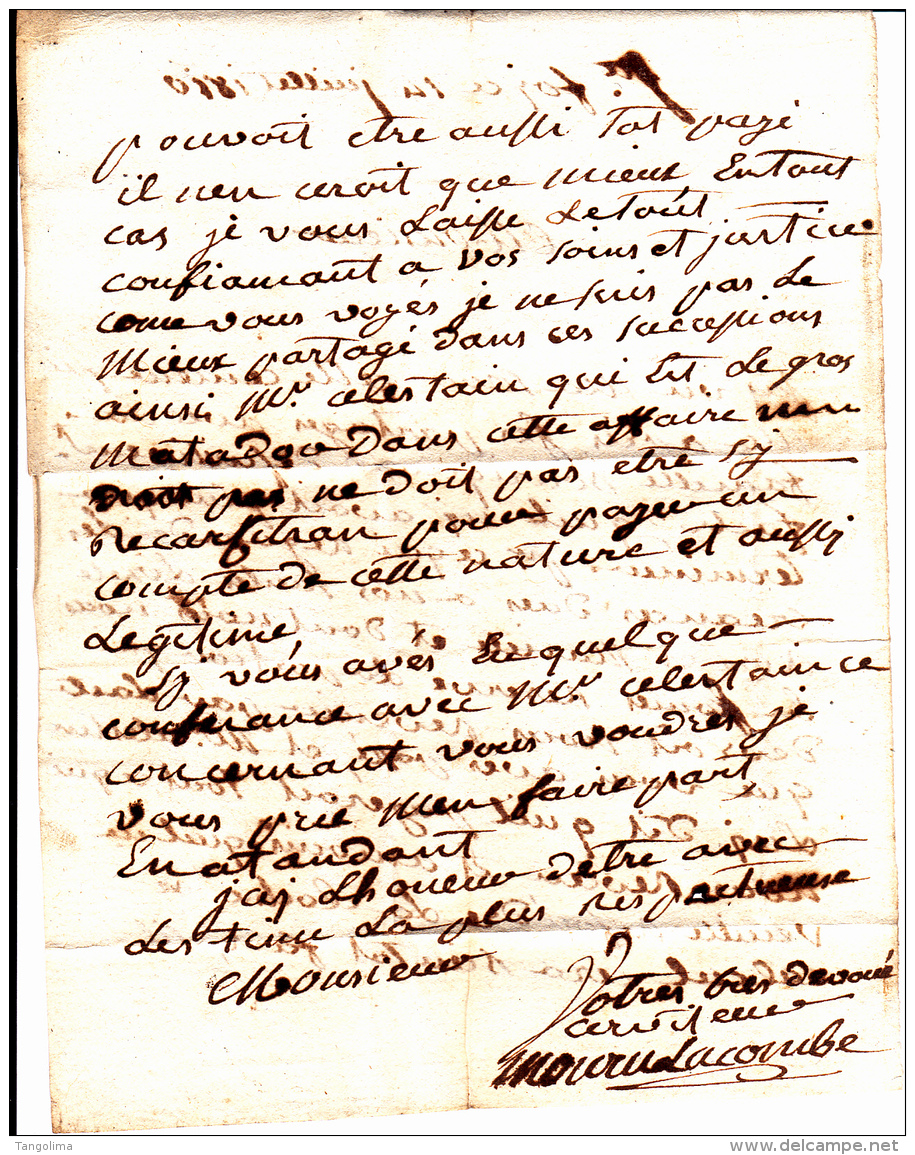 pouvoit etre aussi tot payé
il nen ceroit que mieux En tout
cas je vous Laisse Le tout
confiamant a vos soins et justice
come vous voyés je ne suis pas Le
Mieux partagé dans ces successions
ainsi Mr. celestain qui Est Le gros
matador Dans cette affaire
ne doit pas etre sy
Recarsitran pour payer un
compte de cette nature et aussy
Legitime
sy vous avés Eu quelque
conferance avec Mr. celestain ce
concernant vous voudres je
vous prie men faire part
En atandant
jay Lhoneur detre avec
Lestime La plus respectueuse
Monsieur
Votres tres devoué
cerviteur
Lacombe
Tangolima
www.delcampe.net